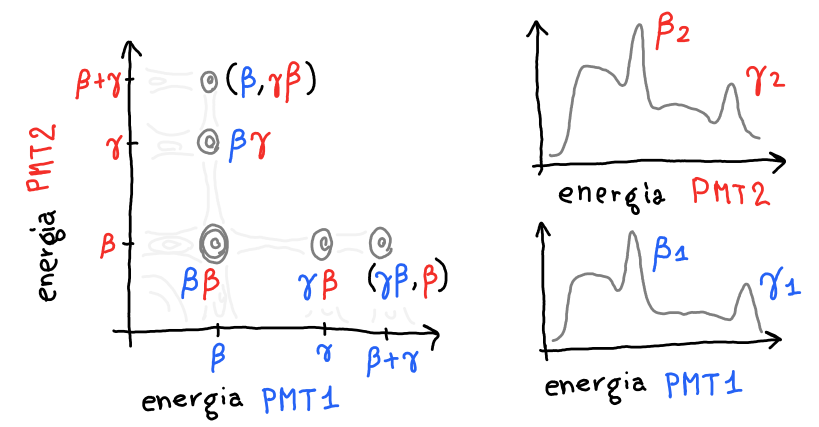 β+γ
(β,γβ)
γ
βγ
energia PMT2
β
ββ
γβ
(γβ,β)
β
γ
β+γ
energia PMT1
β2
γ2
energia PMT2
β1
γ1
energia PMT1